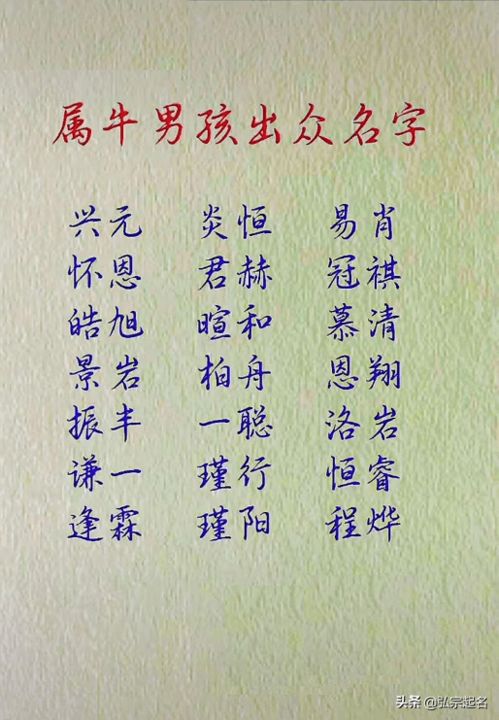 属牛男孩出众名字
兴元 炎恒 易肖
怀恩 君赫 冠祺
皓旭 暄和 慕清
景岩 柏舟 恩翔
振丰 一聪 洛岩
谦一 瑾行 恒睿
逢霖 瑾阳 程烨
头条 @弘宗起名